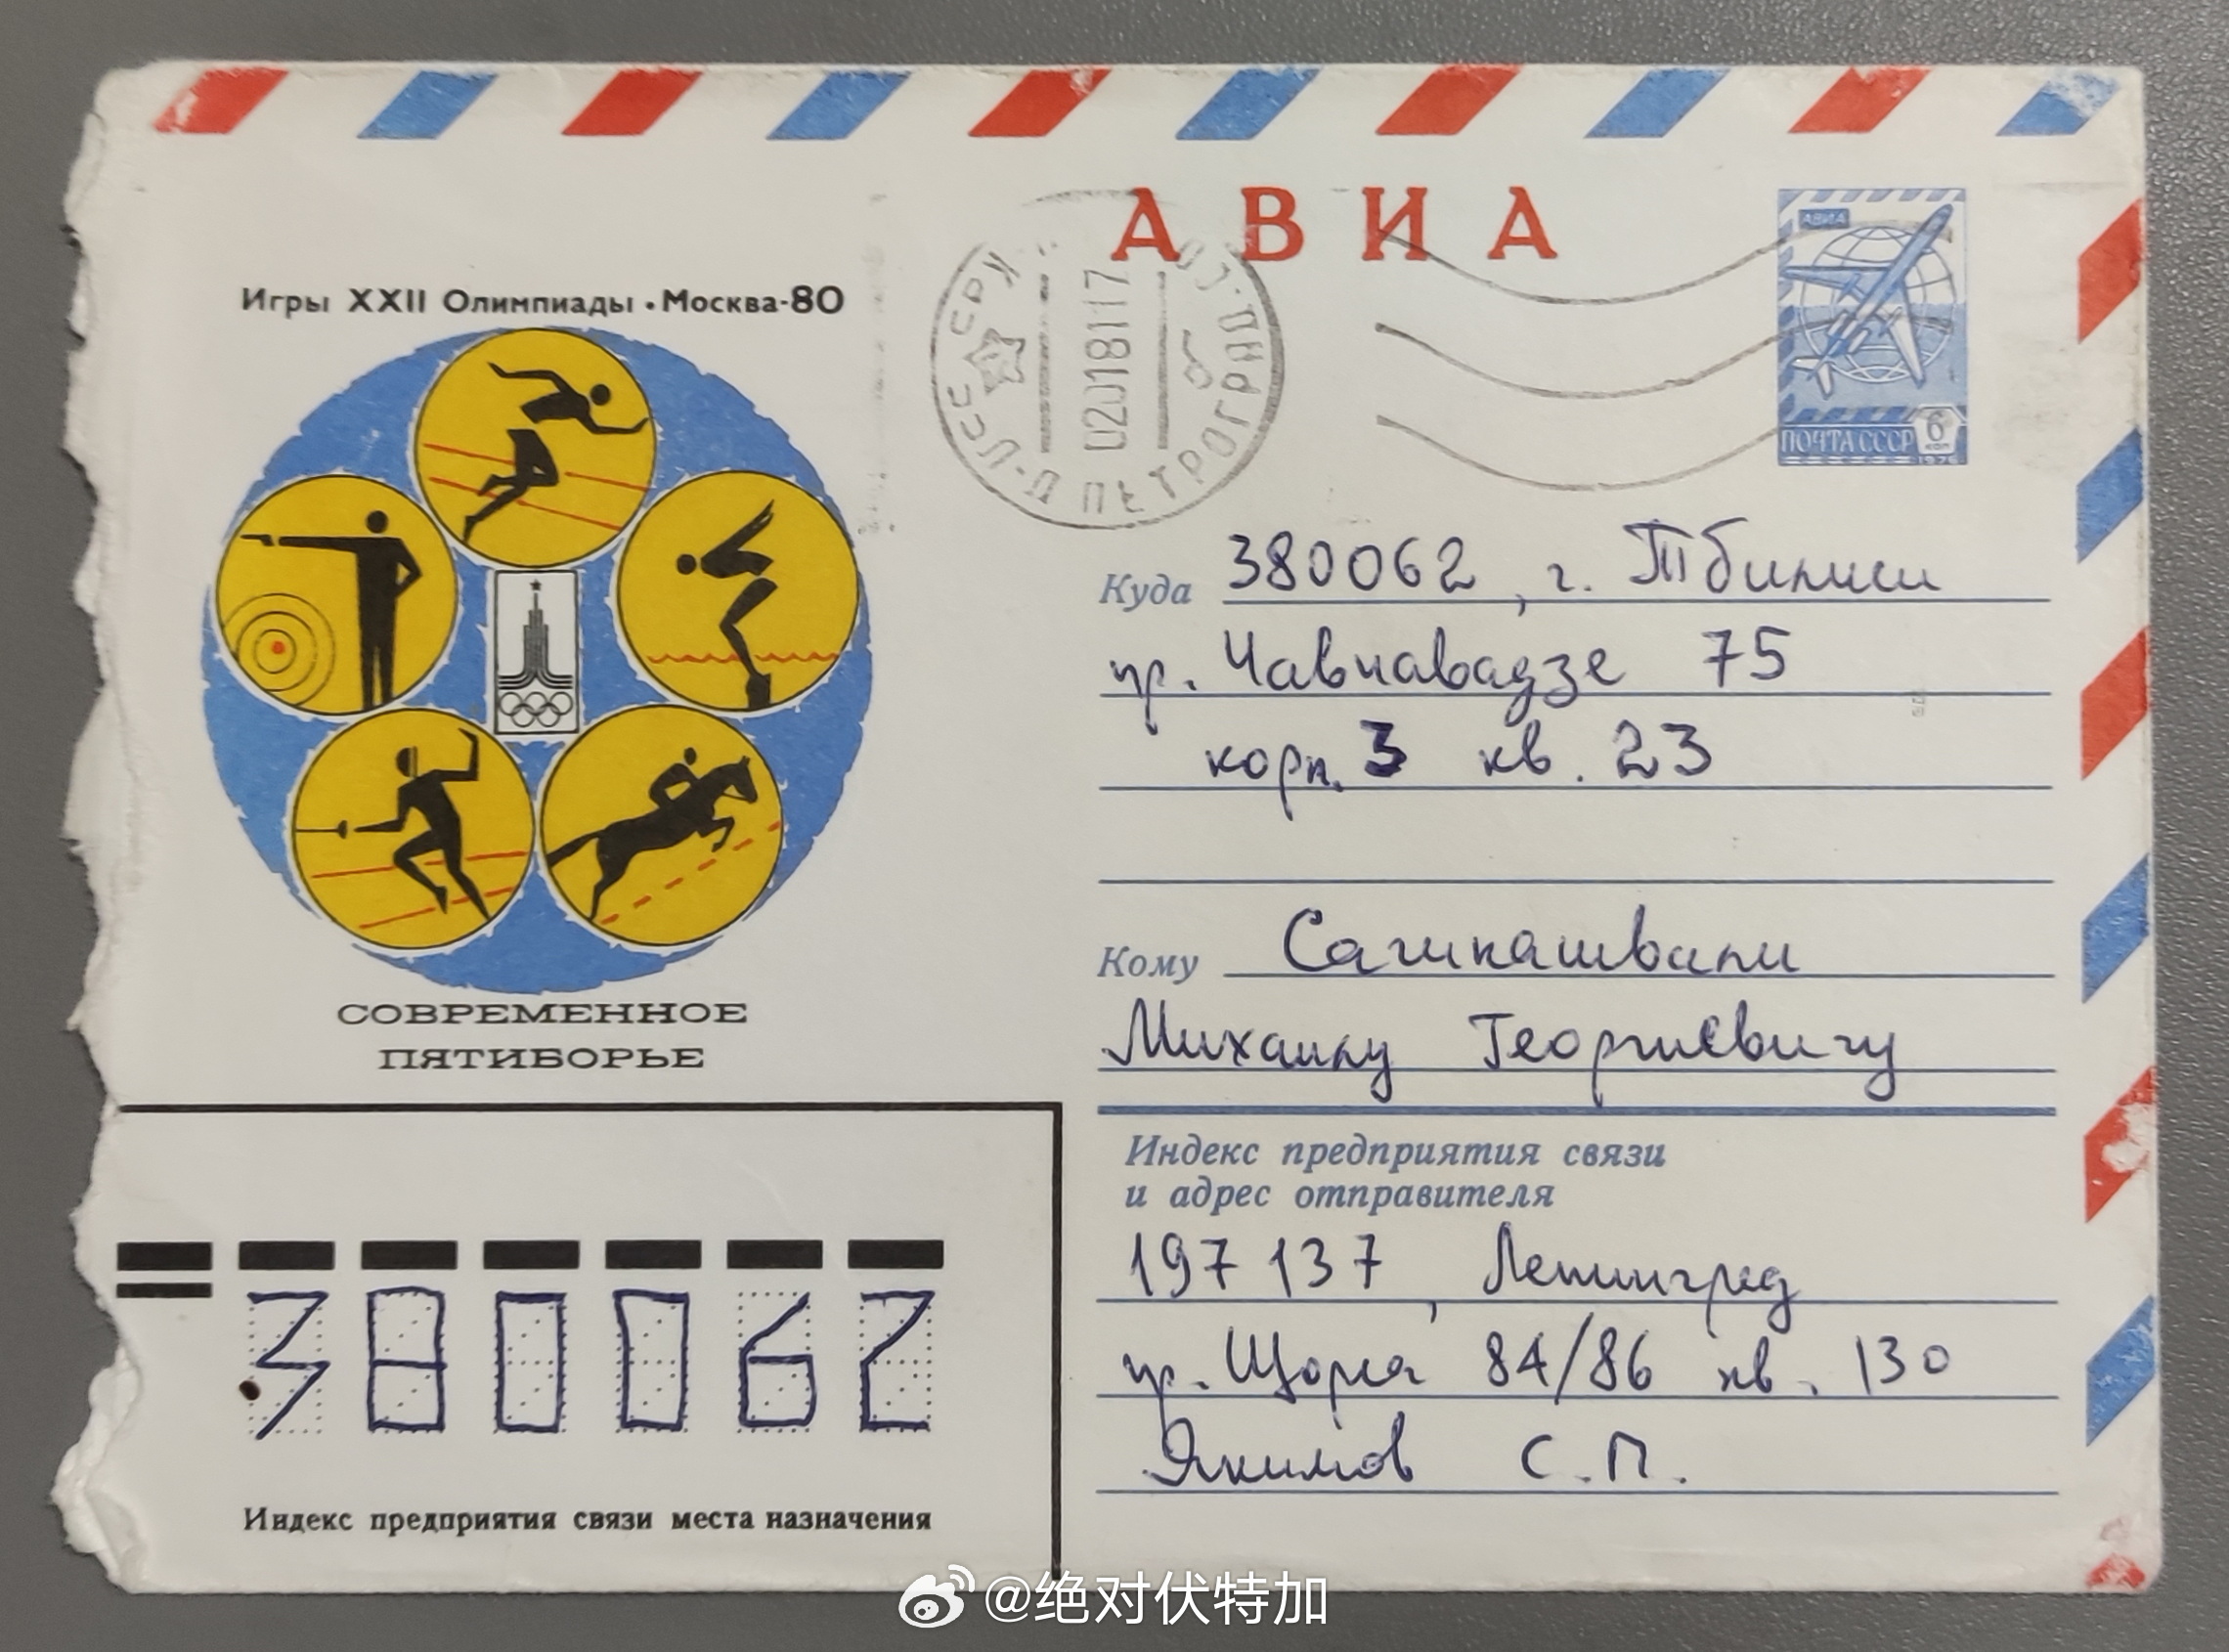 АВИА
АВИА
ПОЧТА СССР
6 коп
1976
Игры XXII Олимпиады • Москва-80
СССР
02 01 81 17
Л-Д ПЕТРОГРАД. П
СОВРЕМЕННОЕ
ПЯТИБОРЬЕ
Куда 380062, г. Тбилиси
пр. Чавчавадзе 75
корп. 3 кв. 23
Кому Сагикашвили
Михаилу Георгиевичу
Индекс предприятия связи
и адрес отправителя
197137, Ленинград
пр. Щорса 84/86 кв. 130
Якимов С.П.
380062
Индекс предприятия связи места назначения
@绝对伏特加